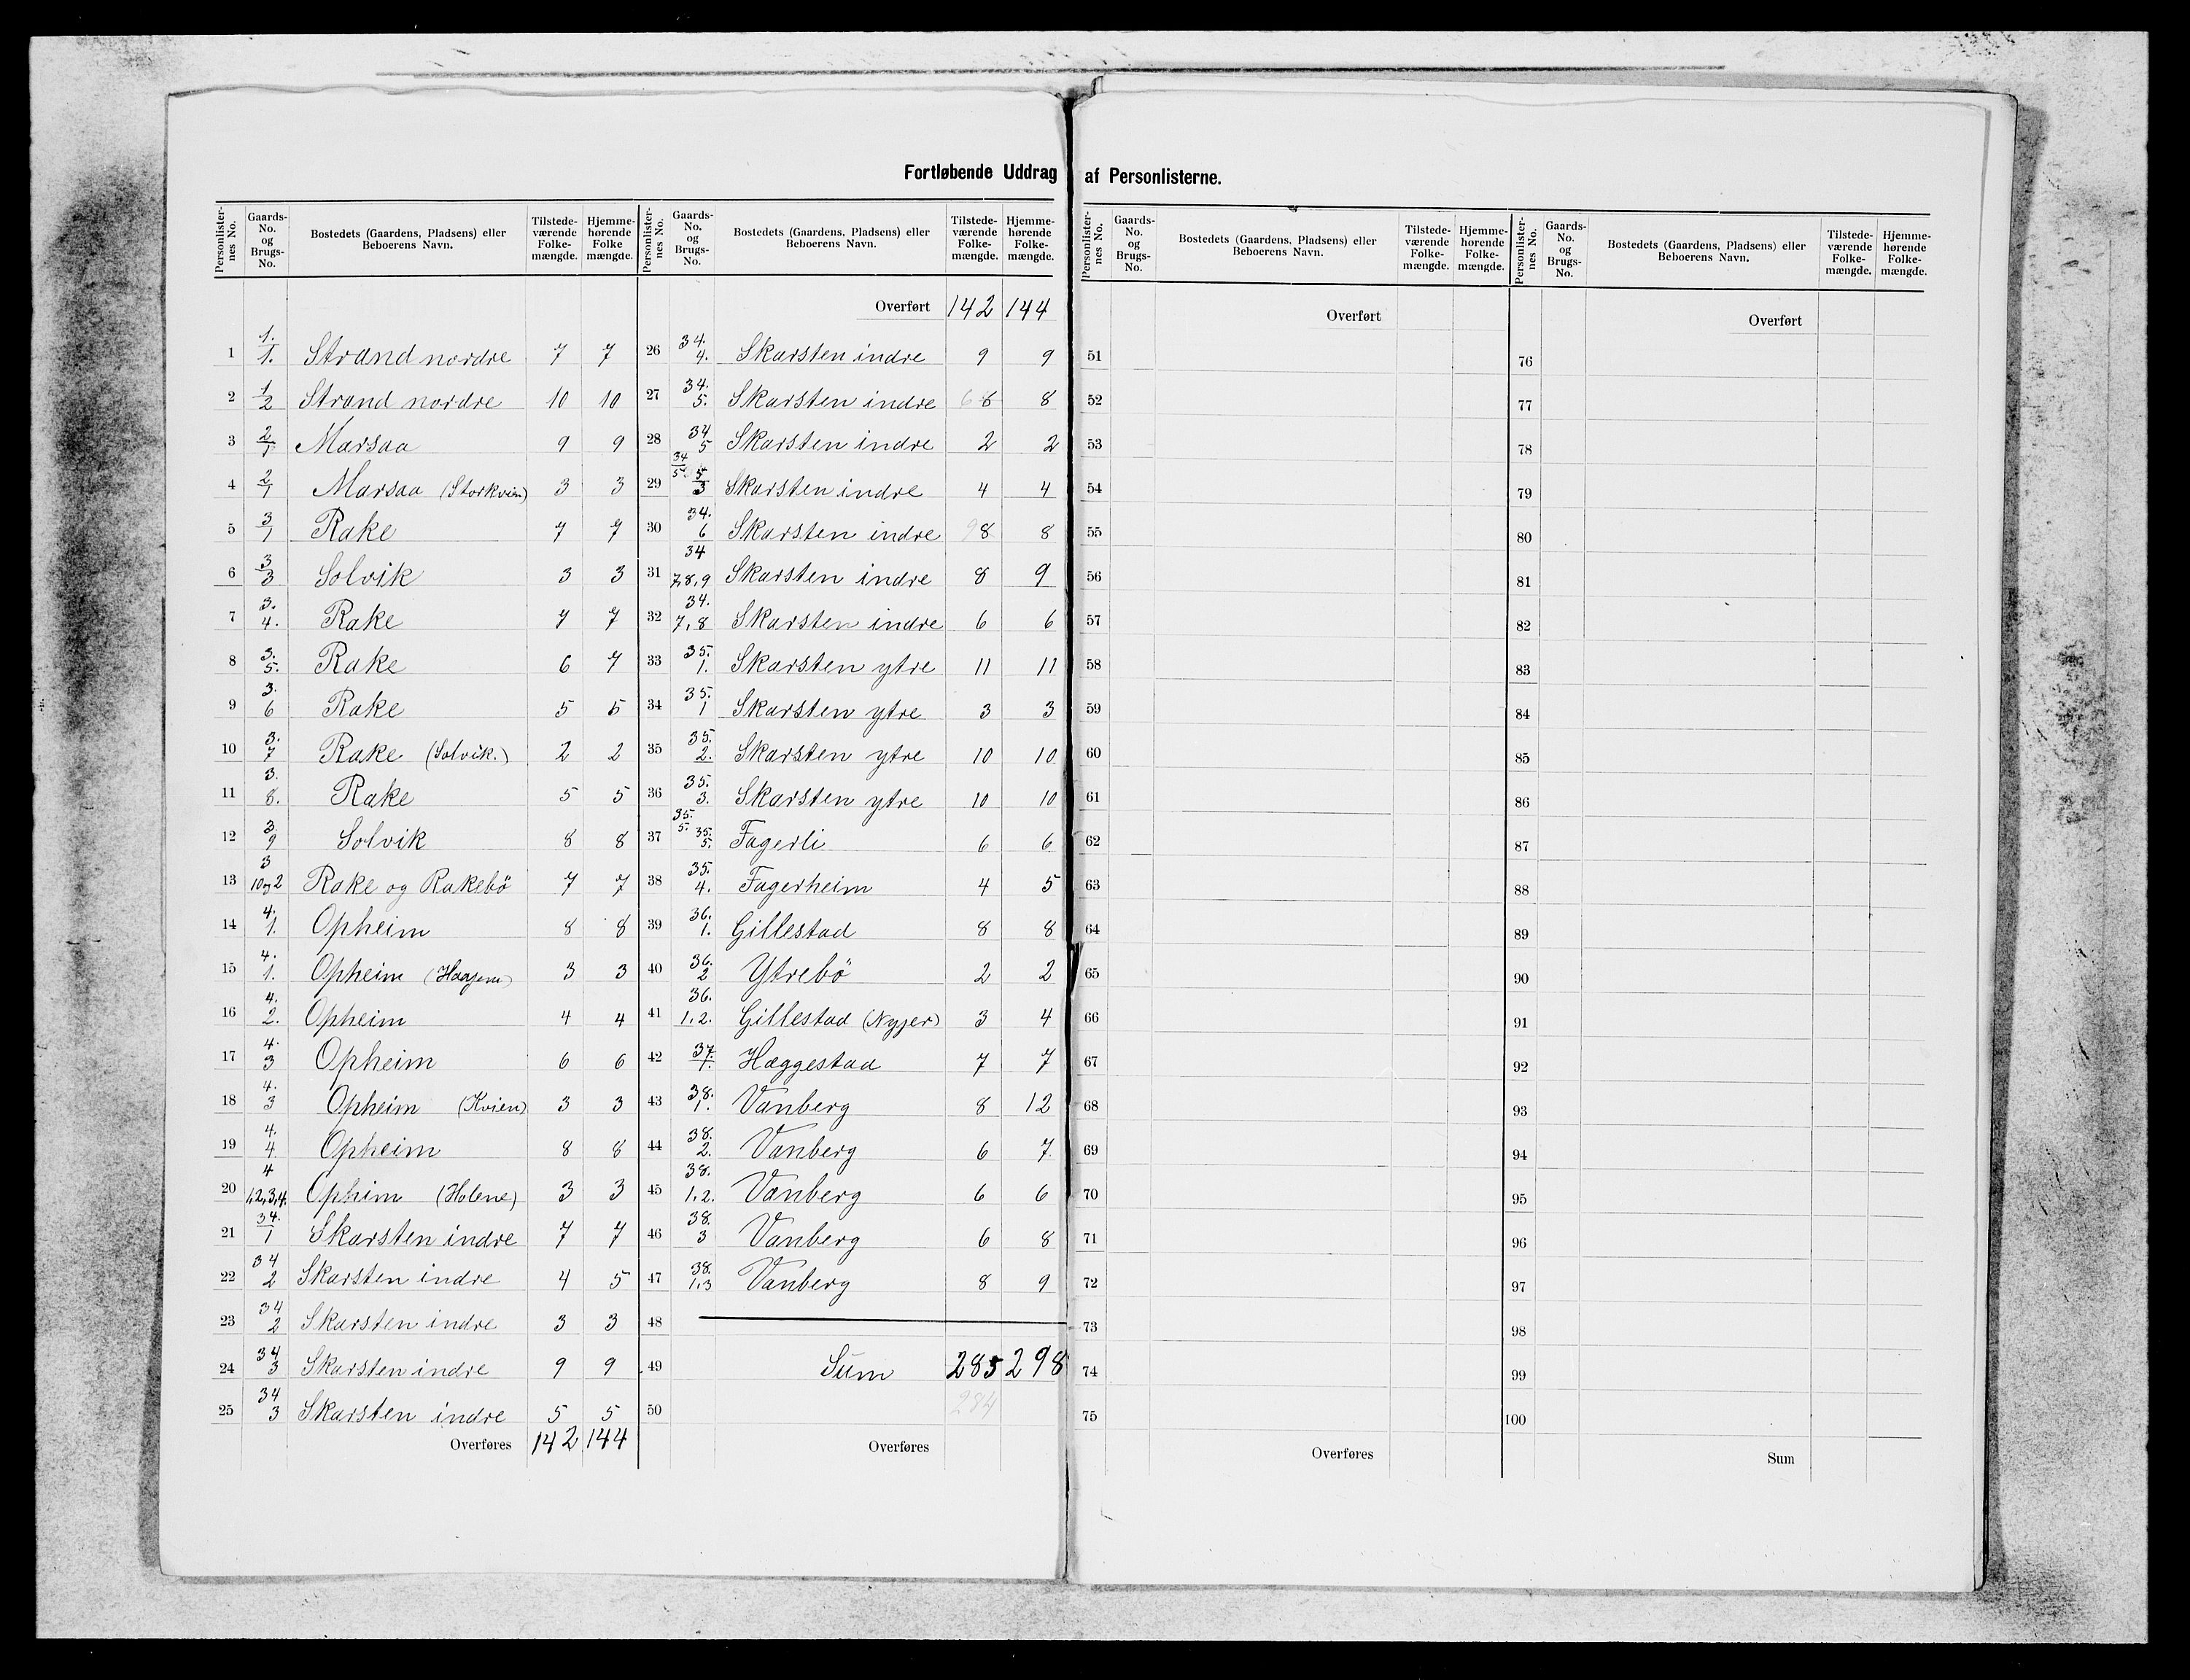 Fortløbende Uddrag af Personlisterne.
Personlisternes No. | Gaards-No. og Brugs-No. | Bostedets (Gaardens, Pladsens) eller Beboerens Navn. | Tilstedeværende Folkemængde. | Hjemmehørende Folkemængde.
1 1./1. Strand nordre 7 7
2 1/2 Strand nordre 10 10
3 2/1 Marsaa 9 9
4 2/1 Marsaa (Storkvien) 3 3
5 3/1 Rake 7 7
6 3/3 Solvik 3 3
7 3./4. Rake 7 7
8 3./5. Rake 6 7
9 3./6 Rake 5 5
10 3./7 Rake (Solvik.) 2 2
11 3./8. Rake 5 5
12 3/9 Solvik 8 8
13 3/10 og 2 Rake og Rakebö 7 7
14 4./1. Opheim 8 8
15 4./1. Opheim 3 3
16 4./2. Opheim 4 4
17 4./3 Opheim 6 6
18 4./3 Opheim (Kvien) 3 3
19 4./4 Opheim 8 8
20 4/1,2,3,4. Ophim (Holene) 3 3
21 34./1 Skarsten indre 7 7
22 34/2 Skarsten indre 4 5
23 34/2 Skarsten indre 3 3
24 34/3 Skarsten indre 9 9
25 34/3 Skarsten indre 5 5
Overføres 142 144
Personlisternes No. | Gaards-No. og Brugs-No. | Bostedets (Gaardens, Pladsens) eller Beboerens Navn. | Tilstedeværende Folkemængde. | Hjemmehørende Folkemængde.
Overført 142 144
26 34./4. Skarsten indre 9 9
27 34./5. Skarsten indre 6 8 8
28 34/5 Skarsten indre 2 2
29 34/5 5/3 Skarsten indre 4 4
30 34./6 Skarsten indre 9 8 8
31 34/7,8,9 Skarsten indre 8 9
32 34./7,8 Skarsten indre 6 6
33 35./1. Skarsten ytre 11 11
34 35./1 Skarsten ytre 3 3
35 35./2. Skarsten ytre 10 10
36 35./3. Skarsten ytre 10 10
37 35./5. 35./5. Fagerli 6 6
38 35./4. Fagerheim 4 5
39 36./1. Gillestad 8 8
40 36./2 Ytrebö 2 2
41 36./1,2. Gillestad (Nyjer) 3 4
42 37./1. Hæggestad 7 7
43 38./1. Vanberg 8 12
44 38./2. Vanberg 6 7
45 38./1,2. Vanberg 6 6
46 38./3 Vanberg 6 8
47 38./1,3 Vanberg 8 9
48
49 Sum 285 298
50 284
Overføres
Personlisternes No. | Gaards-No. og Brugs-No. | Bostedets (Gaardens, Pladsens) eller Beboerens Navn. | Tilstedeværende Folkemængde. | Hjemmehørende Folkemængde.
Overført
51
52
53
54
55
56
57
58
59
60
61
62
63
64
65
66
67
68
69
70
71
72
73
74
75
Overføres
Personlisternes No. | Gaards-No. og Brugs-No. | Bostedets (Gaardens, Pladsens) eller Beboerens Navn. | Tilstedeværende Folkemængde. | Hjemmehørende Folkemængde.
Overført
76
77
78
79
80
81
82
83
84
85
86
87
88
89
90
91
92
93
94
95
96
97
98
99
100
Sum